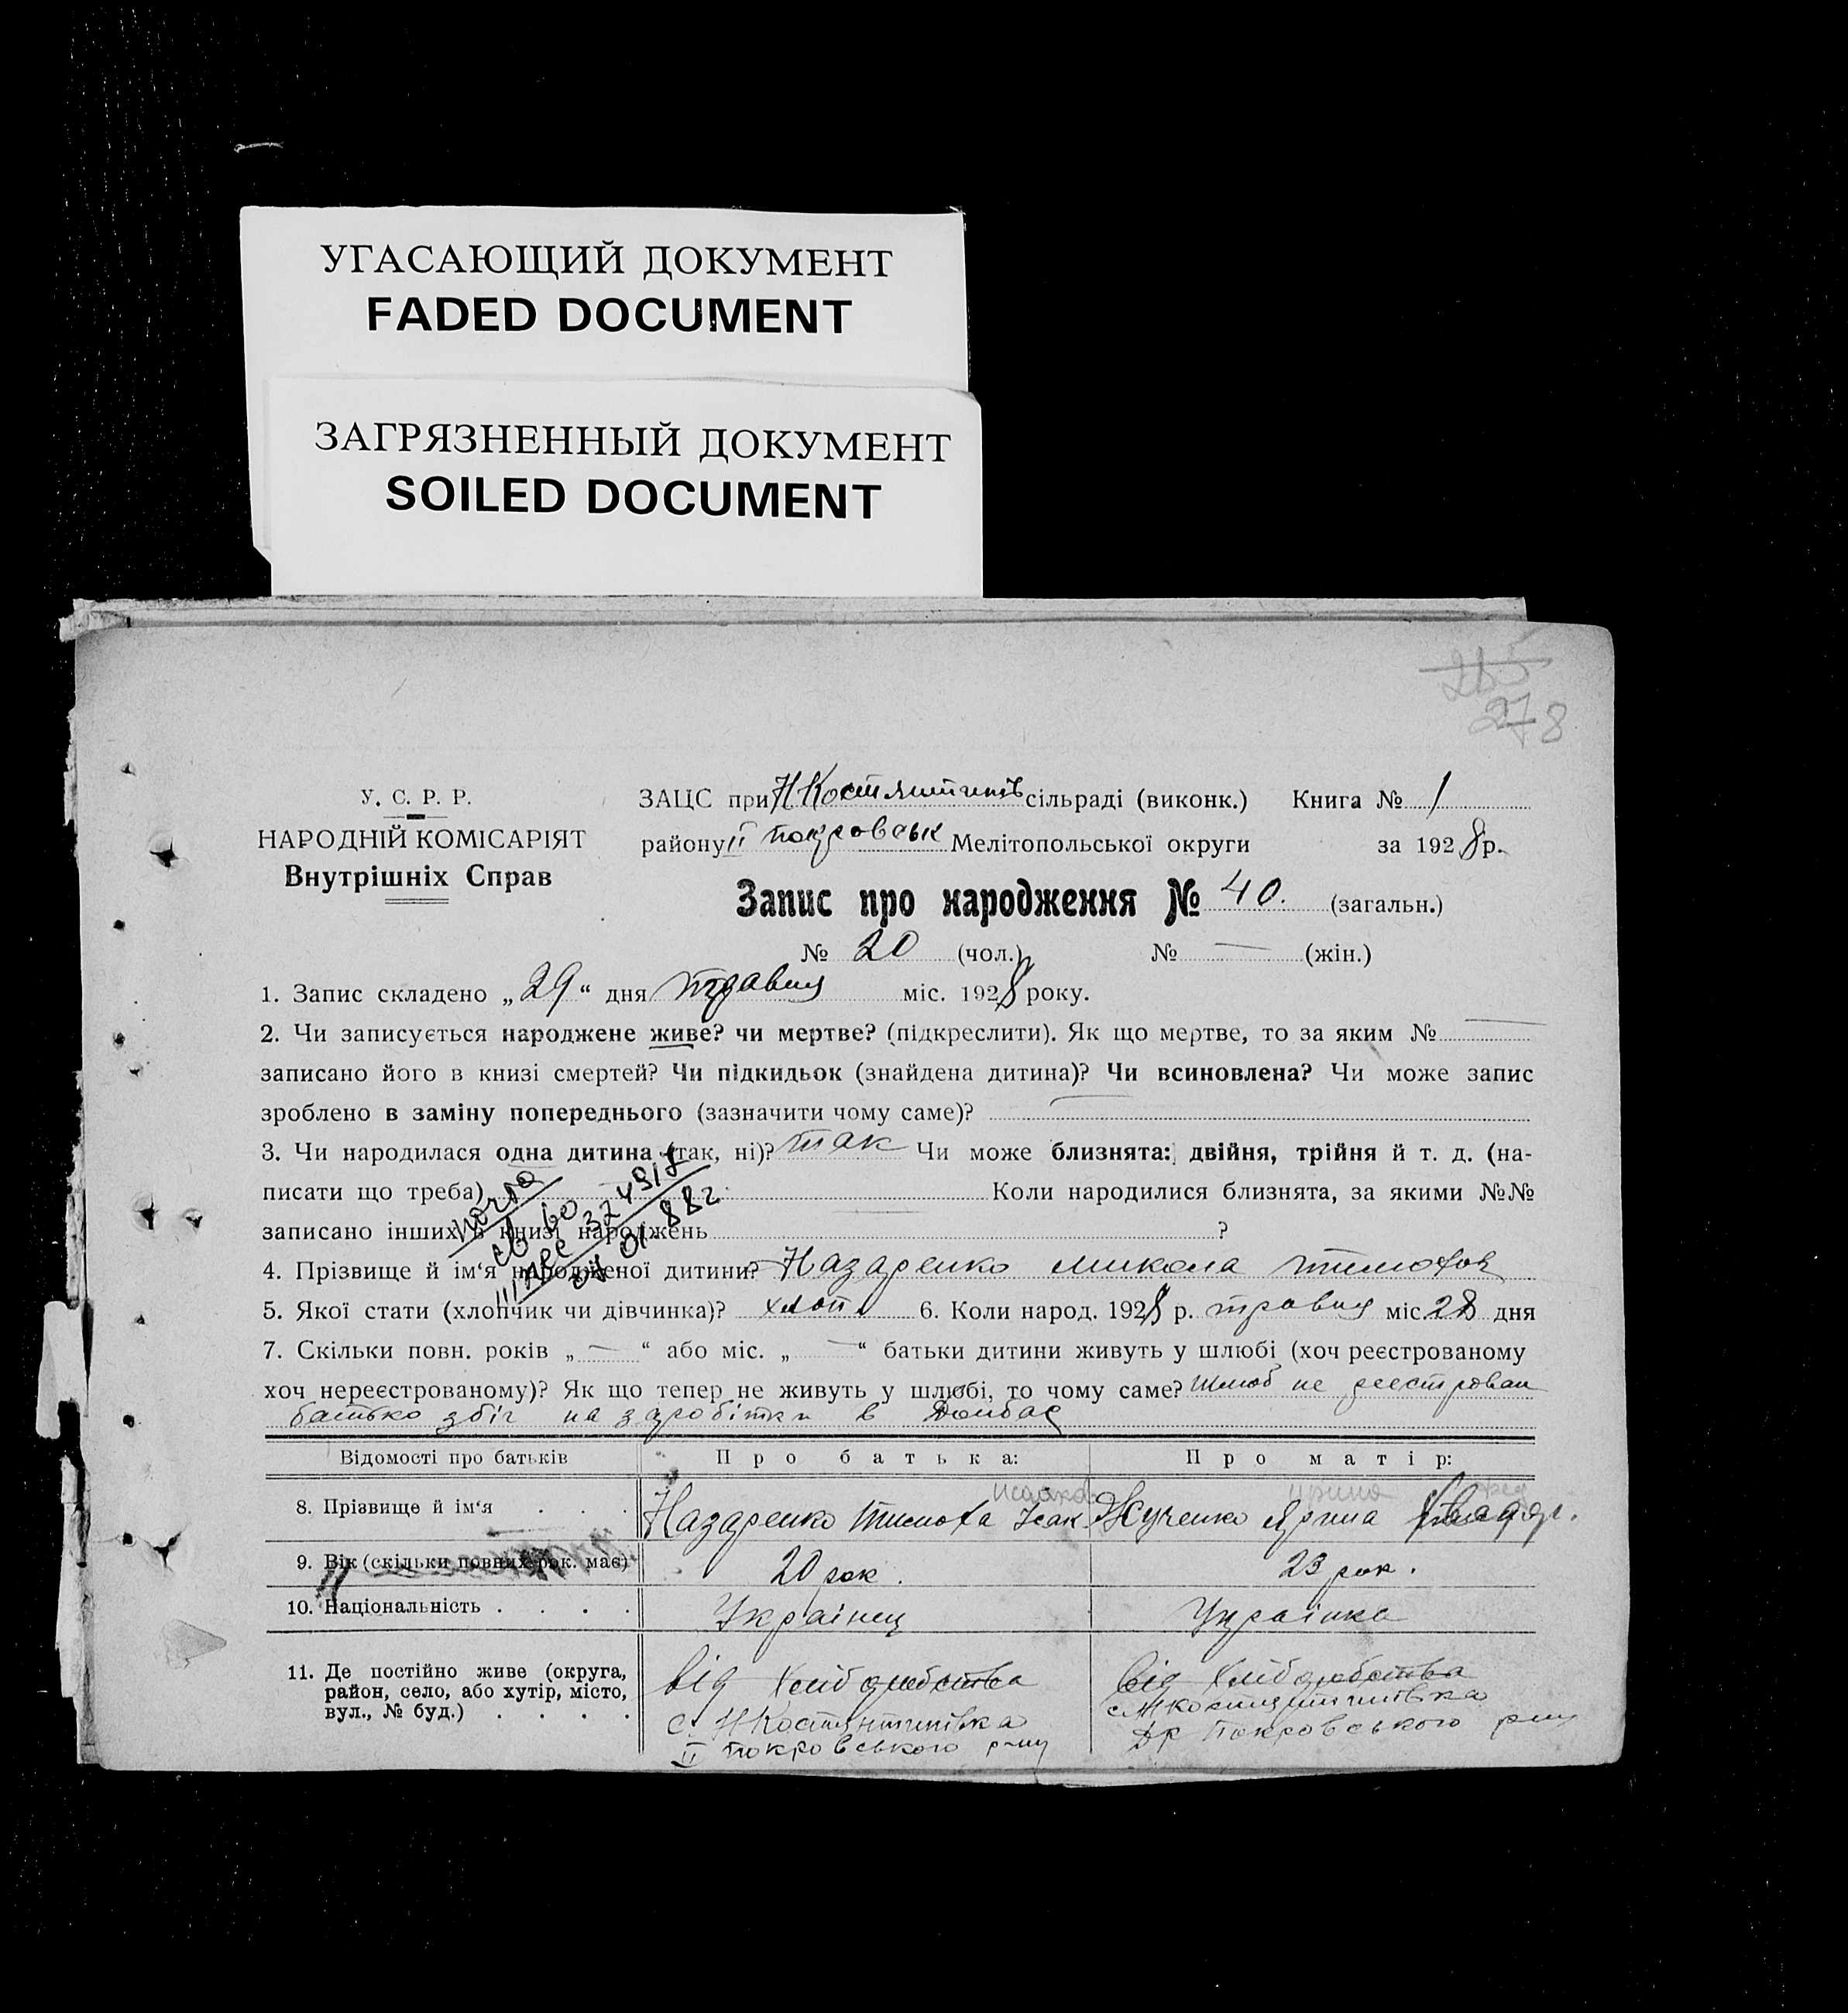 УГАСАЮЩИЙ ДОКУМЕНТ
FADED DOCUMENT
ЗАГРЯЗНЕННЫЙ ДОКУМЕНТ
SOILED DOCUMENT
278
У. С. Р. Р.
НАРОДНІЙ КОМІСАРІЯТ
Внутрішніх Справ
ЗАЦС при сільраді (виконк.) Книга № 1
району II Покровськ Мелітопольської округи за 1928 р.
Запис про народження № 40. (загальн.)
№ 20 (чол.) № — (жін.)
1. Запис складено „29“ дня травня міс. 1928 року.
2. Чи записується народжене живе? чи мертве? (підкреслити). Як що мертве, то за яким № —
записано його в книзі смертей? Чи підкидьок (знайдена дитина)? Чи всиновлена? Чи може запис
зроблено в заміну попереднього (зазначити чому саме)? —
3. Чи народилася одна дитина (так, ні)? так Чи може близнята: двійня, трійня й т. д. (на-
писати що треба) Коли народилися близнята, за якими №№
записано інших в книзі народжень ?
4. Прізвище й ім‘я народженої дитини? Назаренко Микола Тимофов
5. Якої стати (хлопчик чи дівчинка)? хлоп 6. Коли народ. 1928 р. травня міс. 28 дня
7. Скільки повн. років „ — “ або міс. „ — “ батьки дитини живуть у шлюбі (хоч реєстрованому
хоч нереєстрованому)? Як що тепер не живуть у шлюбі, то чому саме? Шлюб не реєстрован
батько збіг на заробітки в Донбас
Відомості про батьків Про батька: Про матір:
8. Прізвище й ім‘я . . . Назаренко Тимоха Ісак Жученко Ярина
9. Вік (скільки повних рок. має) 20 рок. 23 рок.
10. Національність . . . . Українец Українка
11. Де постійно живе (округа,
район, село, або хутір, місто,
вул., № буд.) . . . .
від Хлібодобства
с. НКостянтинівка
II Покровського р-ну
від Хлібодобства
Покровського р-ну